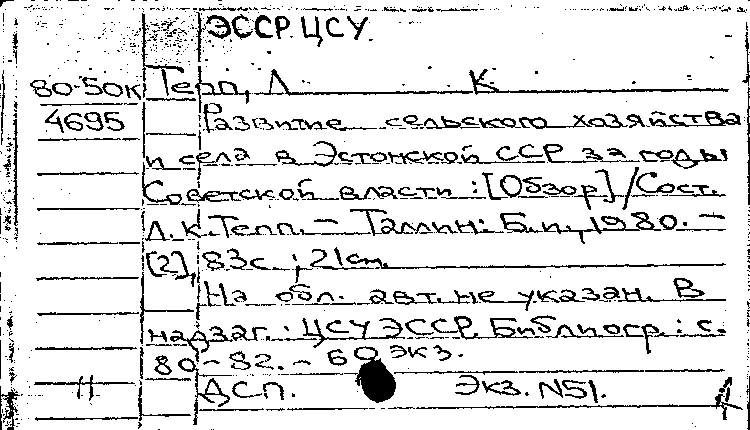 ЭССР. ЦСУ.
80-50к Тепп, Л К
4695 Развитие сельского хозяйства
и села в Эстонской ССР за годы
Советской власти : [Обзор] / Сост.
Л. К. Тепп. – Таллин: Б.и., 1980. –
[2], 83с. ; 21см.
На обл. авт. не указан. В
надзаг.: ЦСУ ЭССР. Библиогр.: с.
80-82. – 60 экз.
11 ДСП. Экз. N51.